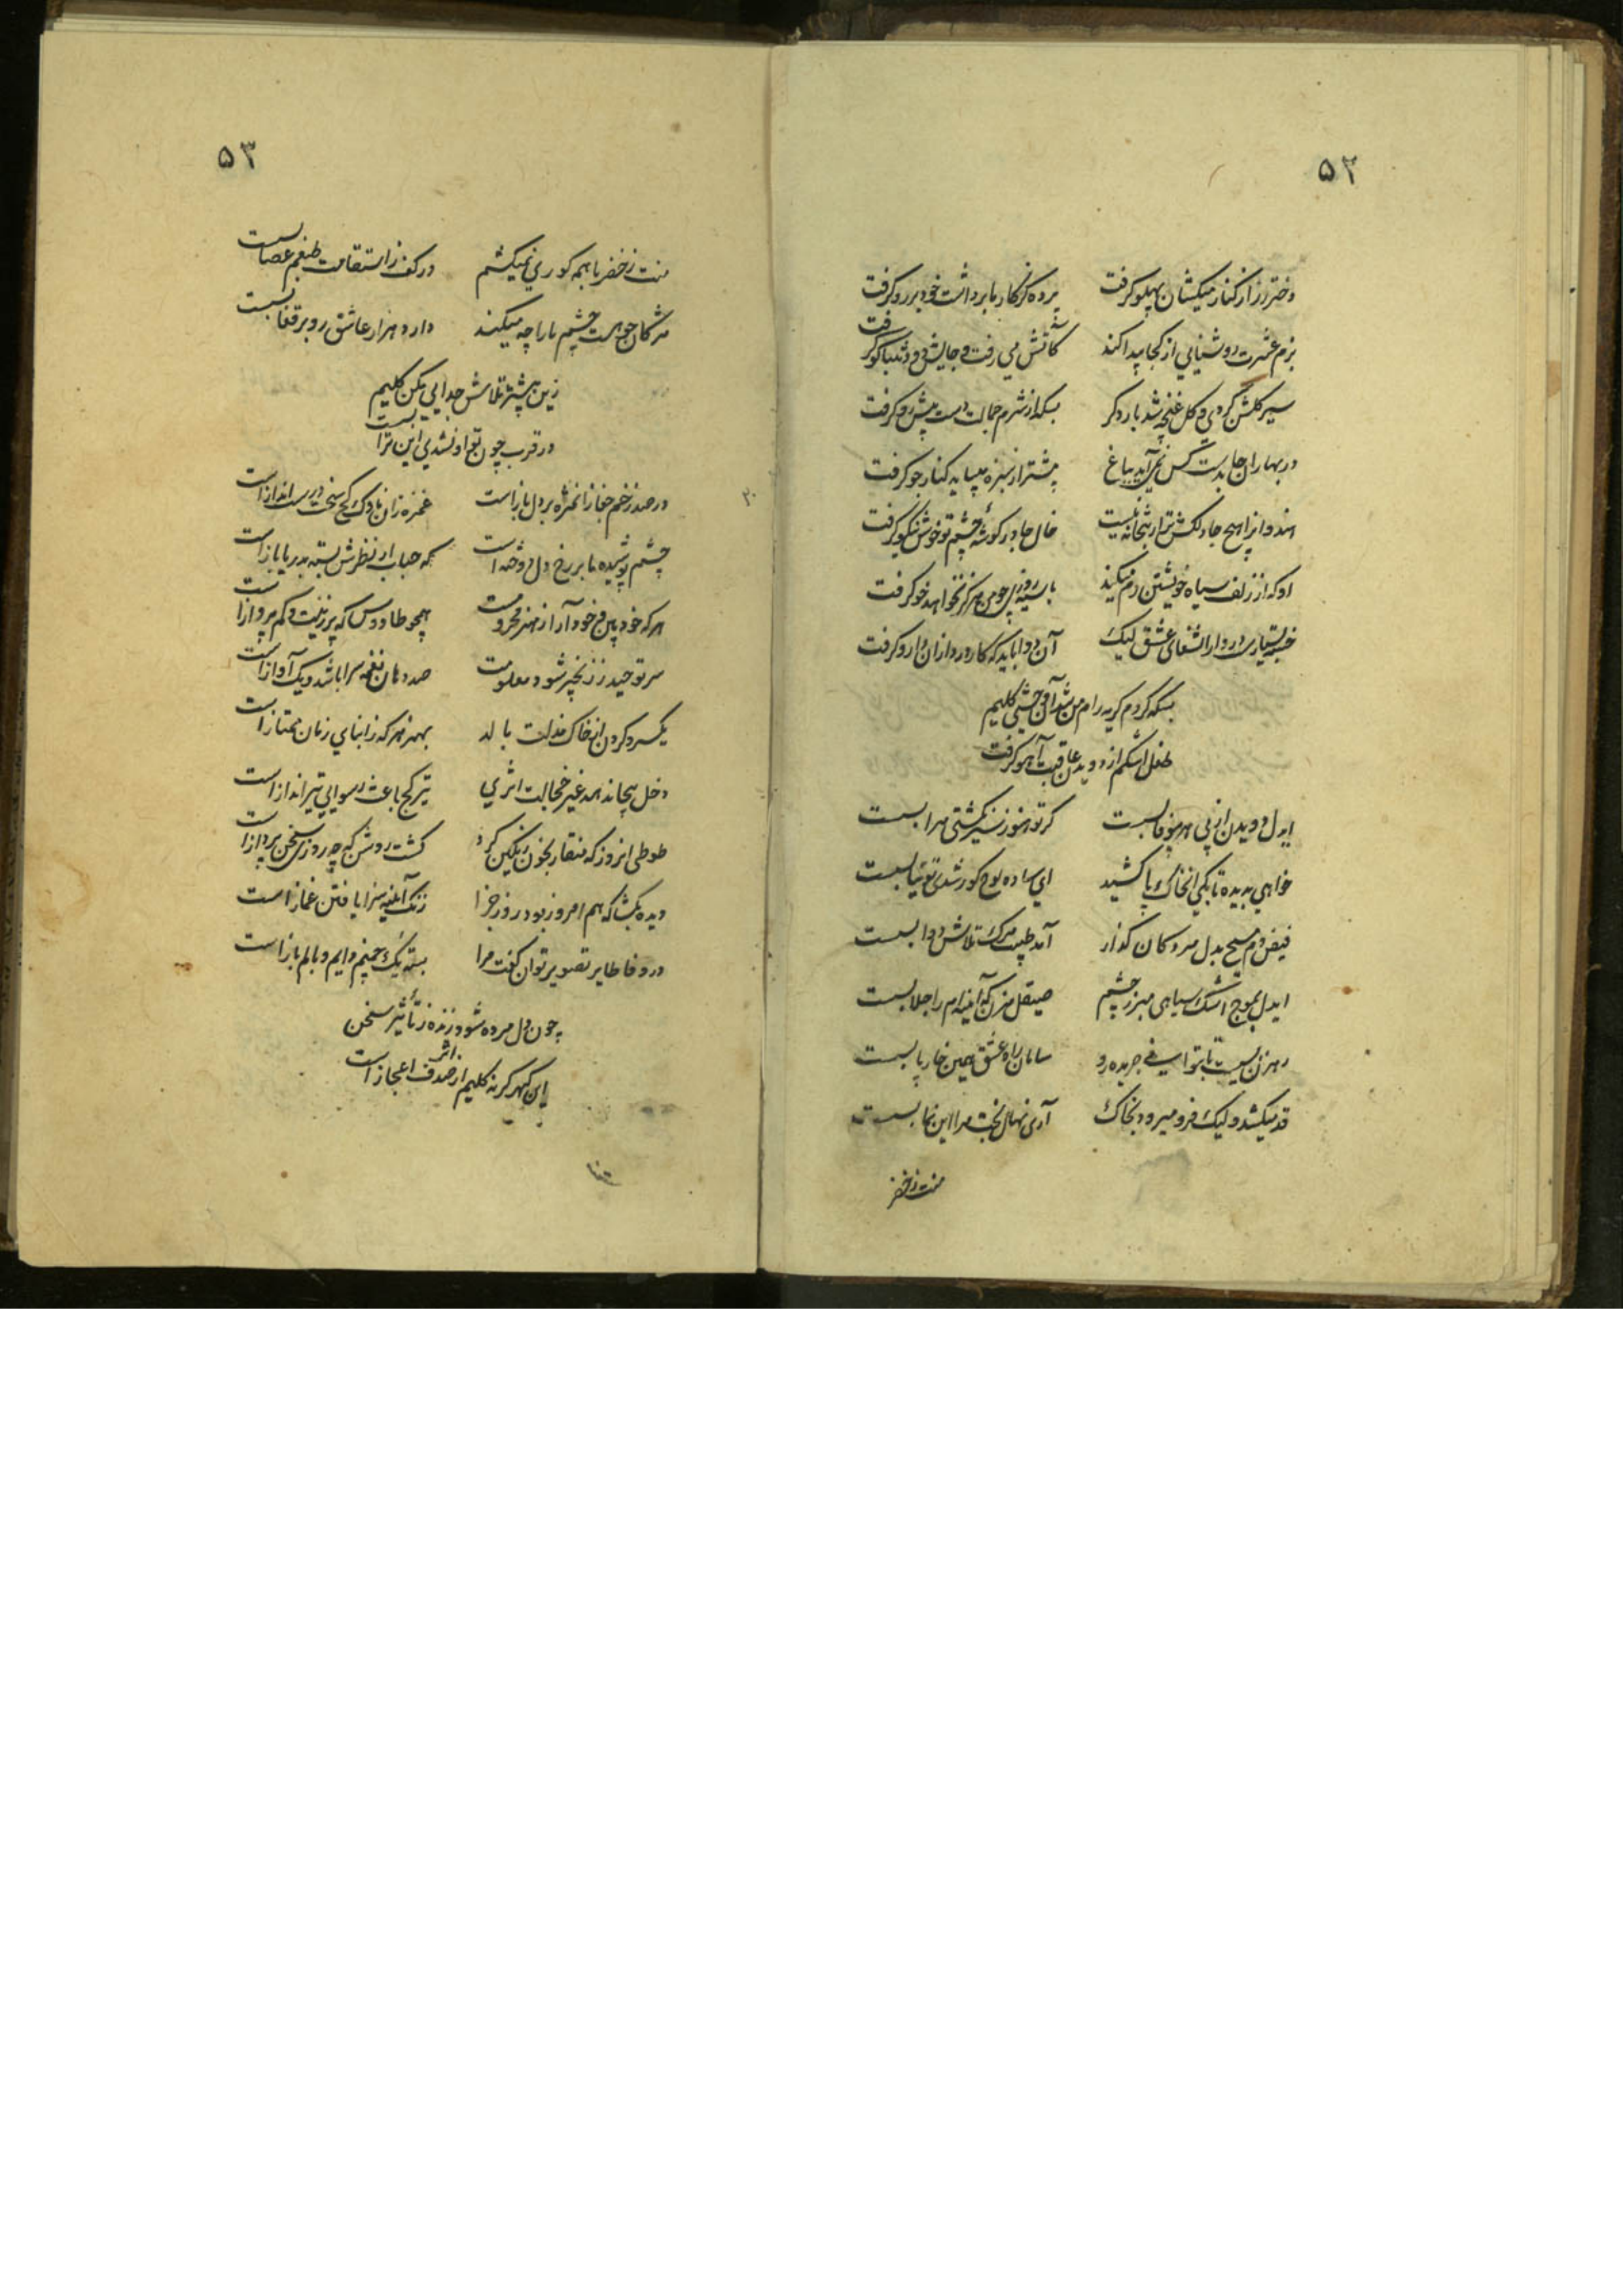 ۵۲
دختر رز از کنار میکشان پهلو گرفت پرده کز کار ما برداشت خود بر رو گرفت
بزم عشرت روشنایی از کجا پیدا کند کاتش می رفت و جایش دود تنباکو گرفت
سیر گلشن کردی و گل غنچه شد بار دگر بسکه از شرم جمالت دست پیش رو گرفت
در بهاران جا بدست کس نمی آید بباغ پیشتر از سبزه میباید کنار جو گرفت
هندوانرا هیچ جا دلکش تر از بتخانه نیست خال جا در گوشه چشم تو خوش نیکو گرفت
او که از زلف سیاه خویشتن رم میکند با سیه روزی چو من هرگز نخواهد خو گرفت
خسته بسیارست در دار الشفای عشق لیک آن دوا باید که کار درد ازان دارو گرفت
بسکه کردم گریه رام من شد آن وحشی کلیم
طفل اشکم از دویدن عاقبت آهو گرفت
ایدل دویدن از پی هر بیوفا بست گر تو هنوز سیر نگشتی مرا بست
خواهی بدیده تا بکی از خاک پا کشید ای ساده لوح کور شدی توتیا بست
فیض دم مسیح بدل مردگان گذار آمد طبیب مرگ تلاش دوا بست
ایدل بموج اشک سیاهی مبر ز چشم صیقل مزن که آینه ام را جلا بست
رهزن بسیست تا بتوانی جریده رو سامان راه عشق همین خار پا بست
قد میکشد ولیک فرو میرود بخاک آری نهال بخت مرا این نما بست
منت ز خضر
۵۳
منت ز خضر با همه کوری نمیکشم در کف ز استقامت طبعم عصا بست
مژگان چو هست چشم یارا چه میکند دارد هزار عاشق رو بر قفا بست
زین بیشتر تلاش جدایی مکن کلیم
در قرب چون تو او نشدی این ترا بست
در صد زخم جفا زان مژه بر دل بازاست غمزه زان ناوک کج سخت درست اندازاست
چشم پوشیده ما بر رخ دل دوخته است که حباب ار نظرش بسته بدریا بازاست
هر که خود بین و خود آرا ز هنر محرومست همچو طاووس که پر زینت و کم پروازاست
سر توحید ز زنجیر شود معلومت صد دهان نغمه سرا باشد و یک آوازاست
یکسر و گردن از خاک مذلت بالد بهنر هر که ز ابنای زمان ممتازاست
دخل بیجا ندهد غیر خجالت اثری تیر کج باعث رسوایی تیراندازاست
طوطی انروز که منقار بخون رنگین کرد گشت روشن که چه روزی سخن پردازاست
دیده بگشا که هم امروز بود روز جزا زنگ آیینه سزا یافتن غمازاست
در وفا طایر تصویر توان گفت مرا بسته یک چمنم دایم و بالم بازاست
چون دل مرده شود زنده ز تأثیر سخن
این گهر گر نه کلیم از صدف اعجازاست